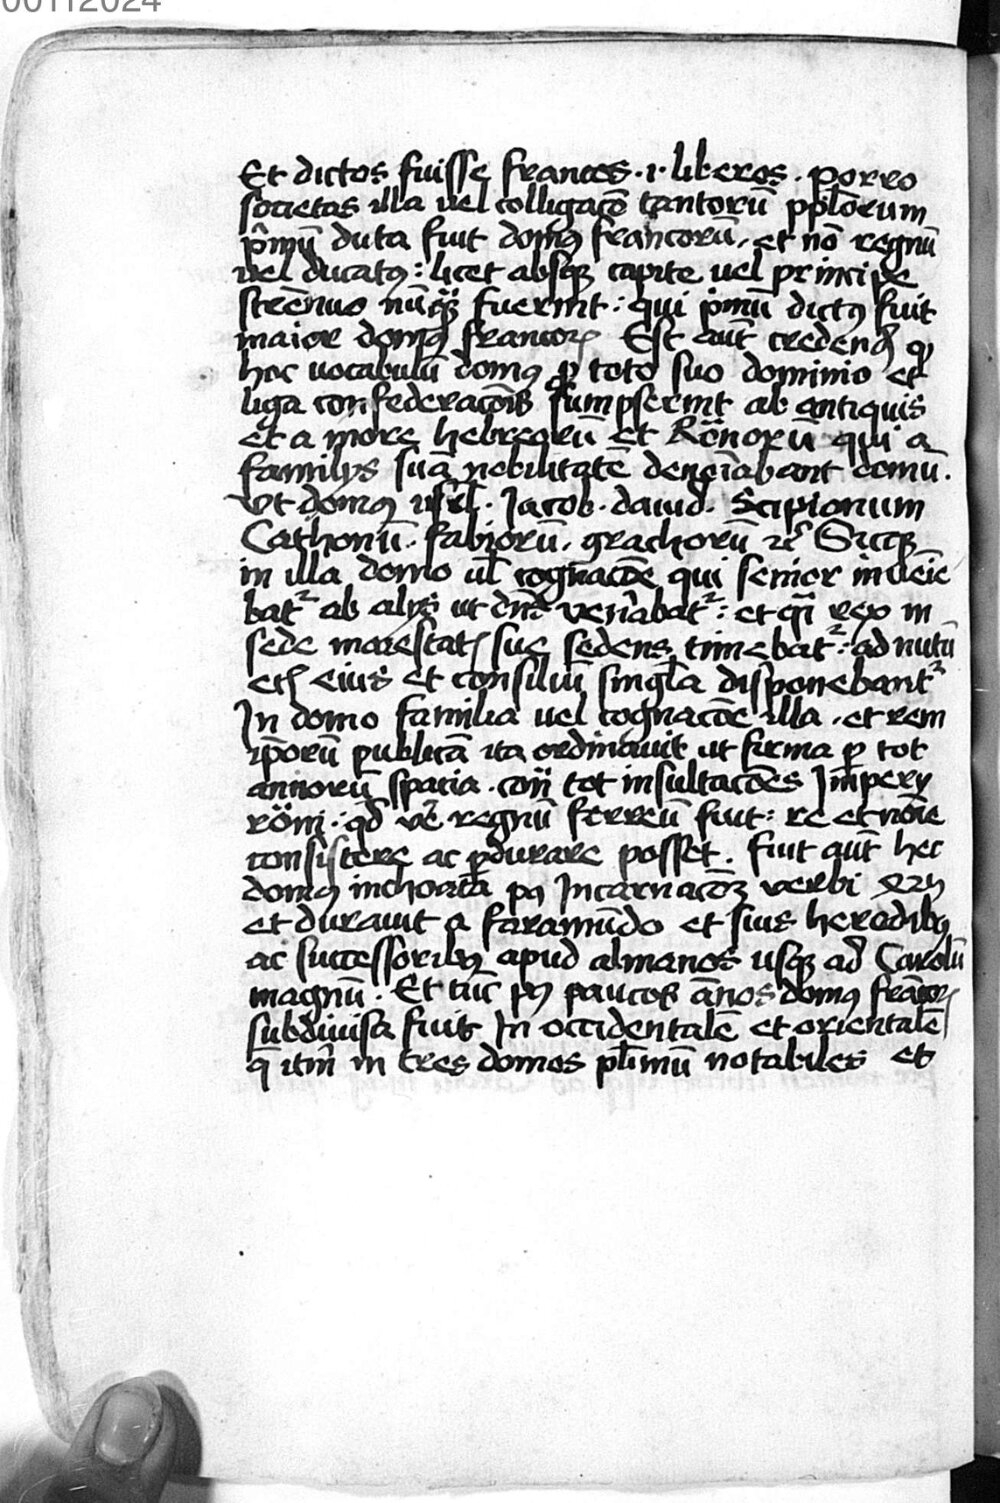 00112024
Et dictos fuisse francos .i. liberos . porro
societas illa uel colligacōē tantorū pplorum
p̄mū dicta fuit domꝰ francorū, et nō regnū
vel ducatꝰ : licet absqꝫ capite vel principe
strēnuo nūqꝫ fuerint : qui p̄mū dictꝰ fuit
maior domꝰ francorꝝ Est aūt credendū qꝫ
hoc uocabulū domꝰ ꝓ toto suo dominio et
liga confederacōīs sumpserint ab antiquis
et a more hebreorū et Rōnorū qui a
familijs suā nobilitatē denoīabant domū .
Vt domꝰ isrl̄ . Jacob . dauid . Scipionum
Cathonū . fabiorū . grachorū ⁊c̄ Sicqꝫ
in illa domo ul̄ cognacōē qui senior
batᷣ ab alijs ut dn̄s : et rex in
sede maiestatꝭ sue sedens timebatᷣ : ad nutū
etꝭ eius et consiliū singl̄a disponebantᷣ
In domo familia uel cognacōē illa . et rem
ip̄orū publicā ita ordinauit ut firma ꝑ tot
annorū spacia . tot insultacōēs Impery
rōni . qd̄ regnū ferreū fuit : re et nōīe
consistere ac ꝑdurare posset . fuit aūt hec
domꝰ inchoata pꝰ Incarnacōꝫ verbi
et durauit a faramūdo et suis heredibꝰ
ac successoribꝰ apud almanos usqꝫ ad Carolū
magnū . Et tūc pꝰ paucos ānos domꝰ francorꝝ
subdiuisa fuit In occidentalē et orientalē
q̄ itm̄ in tres domos pl̄imū notabiles et